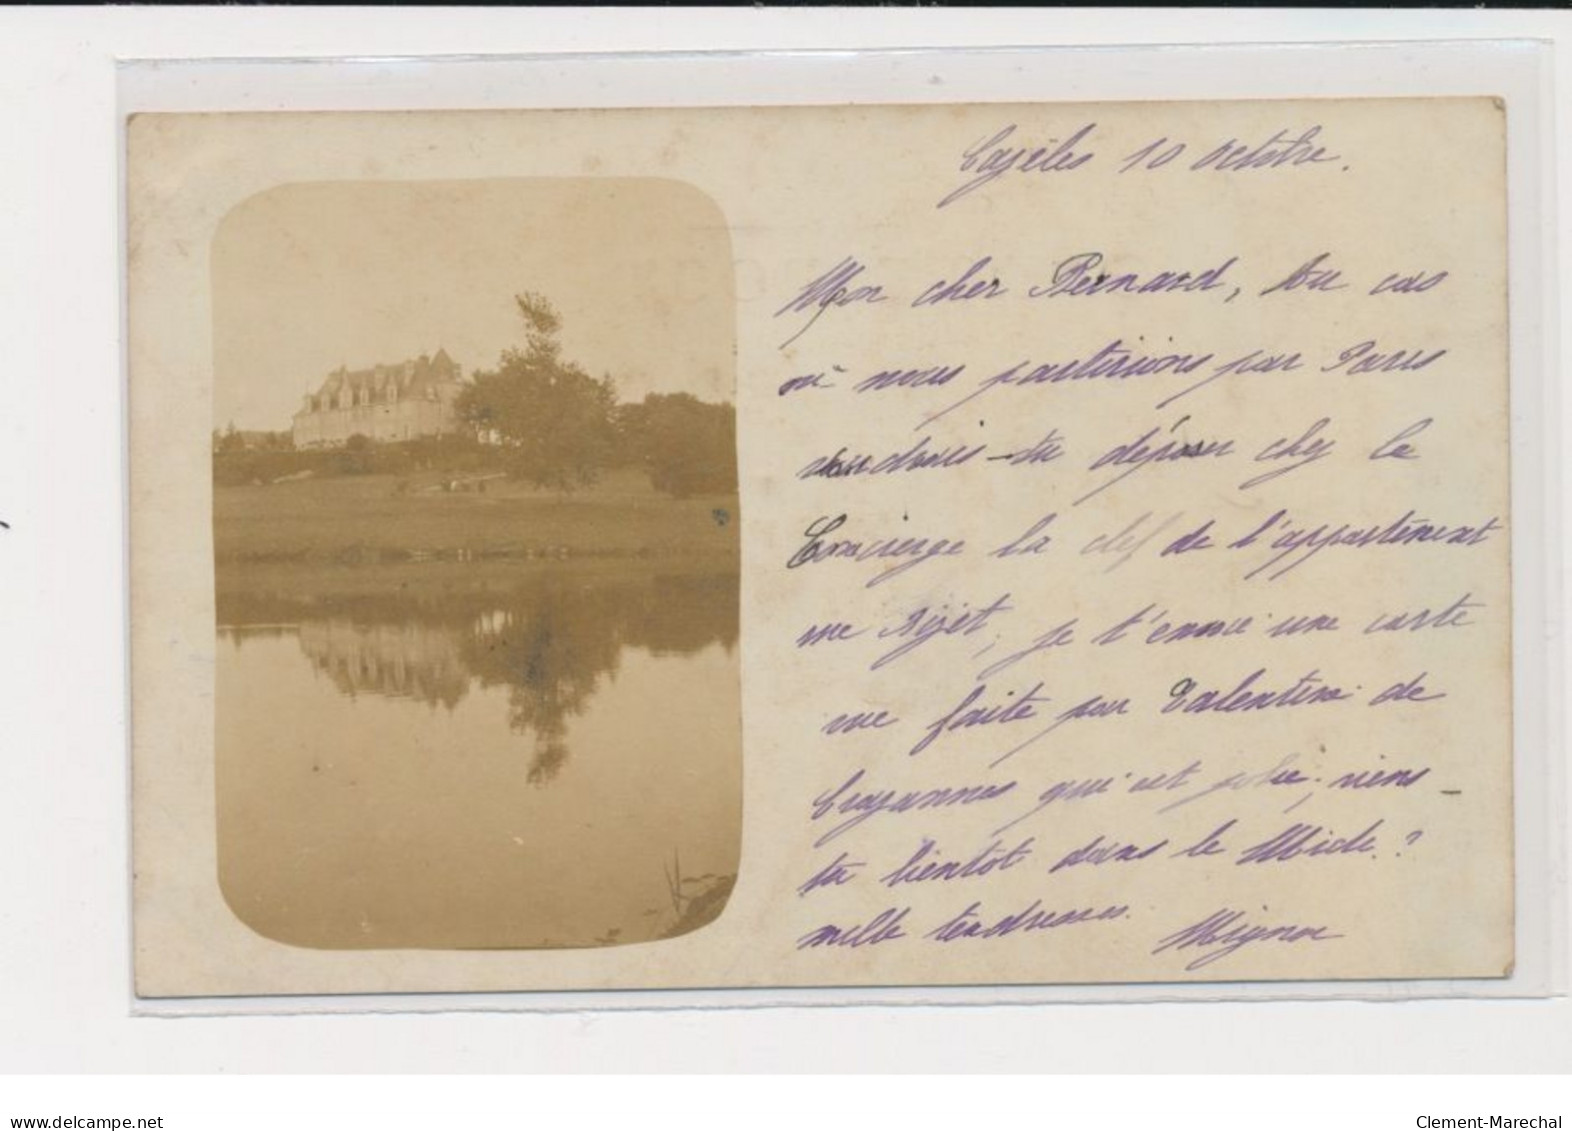 Cayèles 10 octobre.
Mon cher Bernard, Au cas
où nous partirions par Paris
voudrais-tu déposer chez le
Concierge la clef de l'appartement
me dijet, je t'envoie une carte
vue faite par Valentine de
Crazannes qui est jolie; viens-
tu bientôt dans le Midi?
mille tendresses. Mignon
delcampe.net
Clement-Marechal